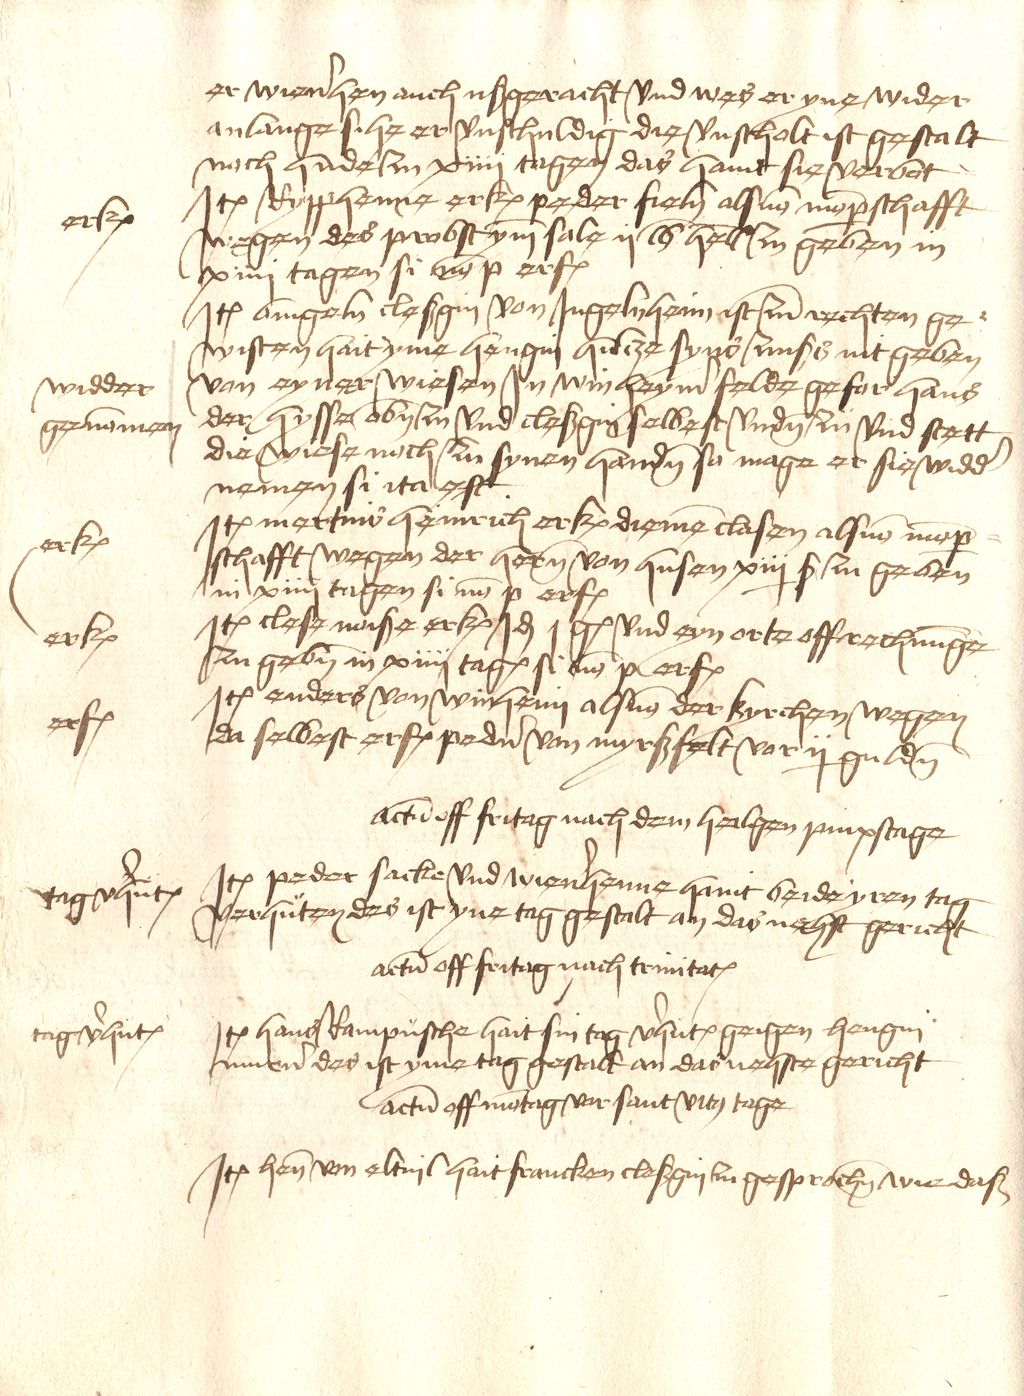 er wienherhen auch ußgeracht und wes er yne wider
anlange sihe er unschuldig die unscholt ist gestalt
noch hudezum xiiii tagen das hant sie verbot
erk(e)
Itz Rypphenne erk(e) peder fieln als vo(n) mo(m)p(ar)schafft
wegen des probst ym sale ii lb hel(le)r zu geben in
xiiii tagen si no(n) p erf(e)
Itz angeln cleßgin von Ingelnheim ist zum rechten ge=
wisten hait yme hengin hiltze syns zinß nit geben
widder
genomen
von eyner wiesen In winheymer felde gefor hans
der hysse obn zu und cleßgin selbest undn zu und stett
die wiese noch zu synen handn so mage er sie widder
nemen si ita est
erk(e)
Itz mertins heinrich erk(e) dieme clasen als vo(n) mo(m)p(ar)=
schafft wegen der hern von husen xiii ß zu geben
in xiiii tagen si no(n) p erf(e)
erk(e)
Itz clese noiße erk(e) Id(em) i g(u)l(den) und eyn orte off rechnunge
zu gebn in xiiii tag(en) si no(n) p erf(e)
erf(e)
Itz enders von winheim als vo(n) der kyrchen wegen
da selbest erf(e) pedern von myrßfelt vor ii guldn
actu(m) off fritag nach dem heilgen pinxstage
tag v(er)hut(en)
Itz peder sacke und wienherhenne hant beide yren tag
verhuten des ist yne tag gestalt an das nehst gericht
actu(m) off fritag nach trinitat(is)
tag v(er)hut(en)
Itz hans Rampusche hait sin tag v(er)hut(en) geigen hengin
des ist yme tag gestalt an das nehste gericht
actu(m) off mo(n)tag vor sant vits tage
Itz hen(n) von eltvil hait francken cleßgin zu gesprochn wie daß